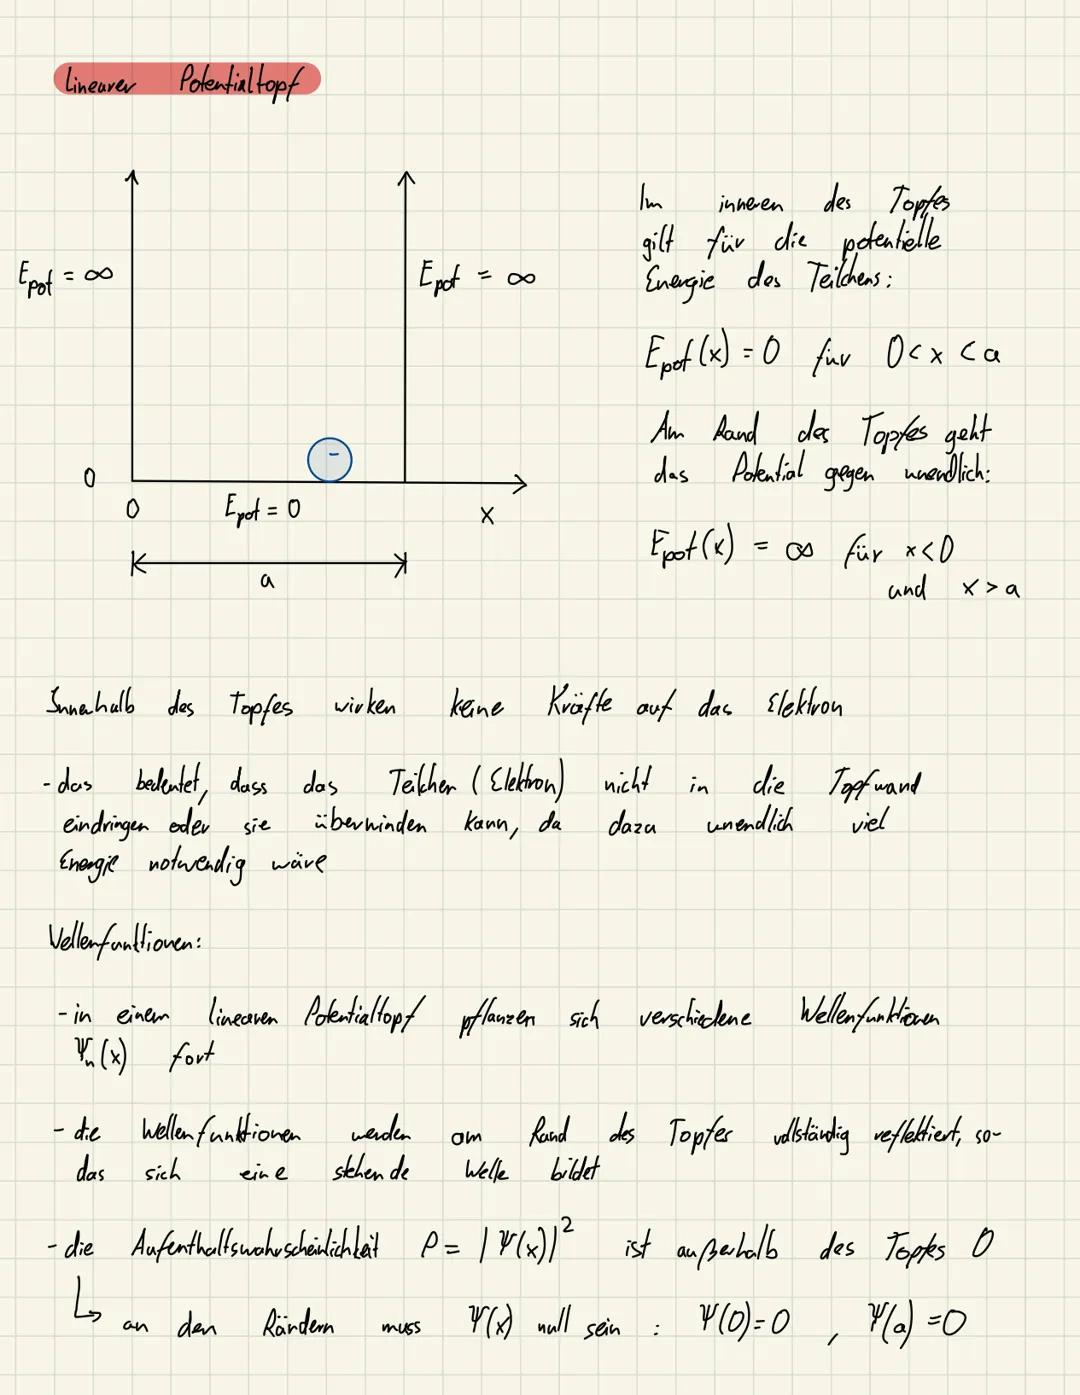 Linearer Potentialtopf
Epot = ∞
Epot = ∞
0
0
Epot = 0
x
a
Im inneren des Topfes
gilt für die potentielle
Energie des Teilchens:
Epot(x) = 0 für 0 < x < a
Am Rand des Topfes geht
das Potential gegen unendlich:
Epot(x) = ∞ für x < 0
und x > a
Innerhalb des Topfes wirken keine Kräfte auf das Elektron
- das bedeutet, dass das Teilchen (Elektron) nicht in die Topfwand
eindringen oder sie überwinden kann, da dazu unendlich viel
Energie notwendig wäre
Wellenfunktionen:
- in einem linearen Potentialtopf pflanzen sich verschiedene Wellenfunktionen
Ψn(x) fort
- die Wellenfunktionen werden am Rand des Topfes vollständig reflektiert, so-
das sich eine stehende Welle bildet
- die Aufenthaltswahrscheinlichkeit P = |Ψ(x)|² ist außerhalb des Topfes 0
↳ an den Rändern muss Ψ(x) null sein : Ψ(0)=0 , Ψ(a)=0